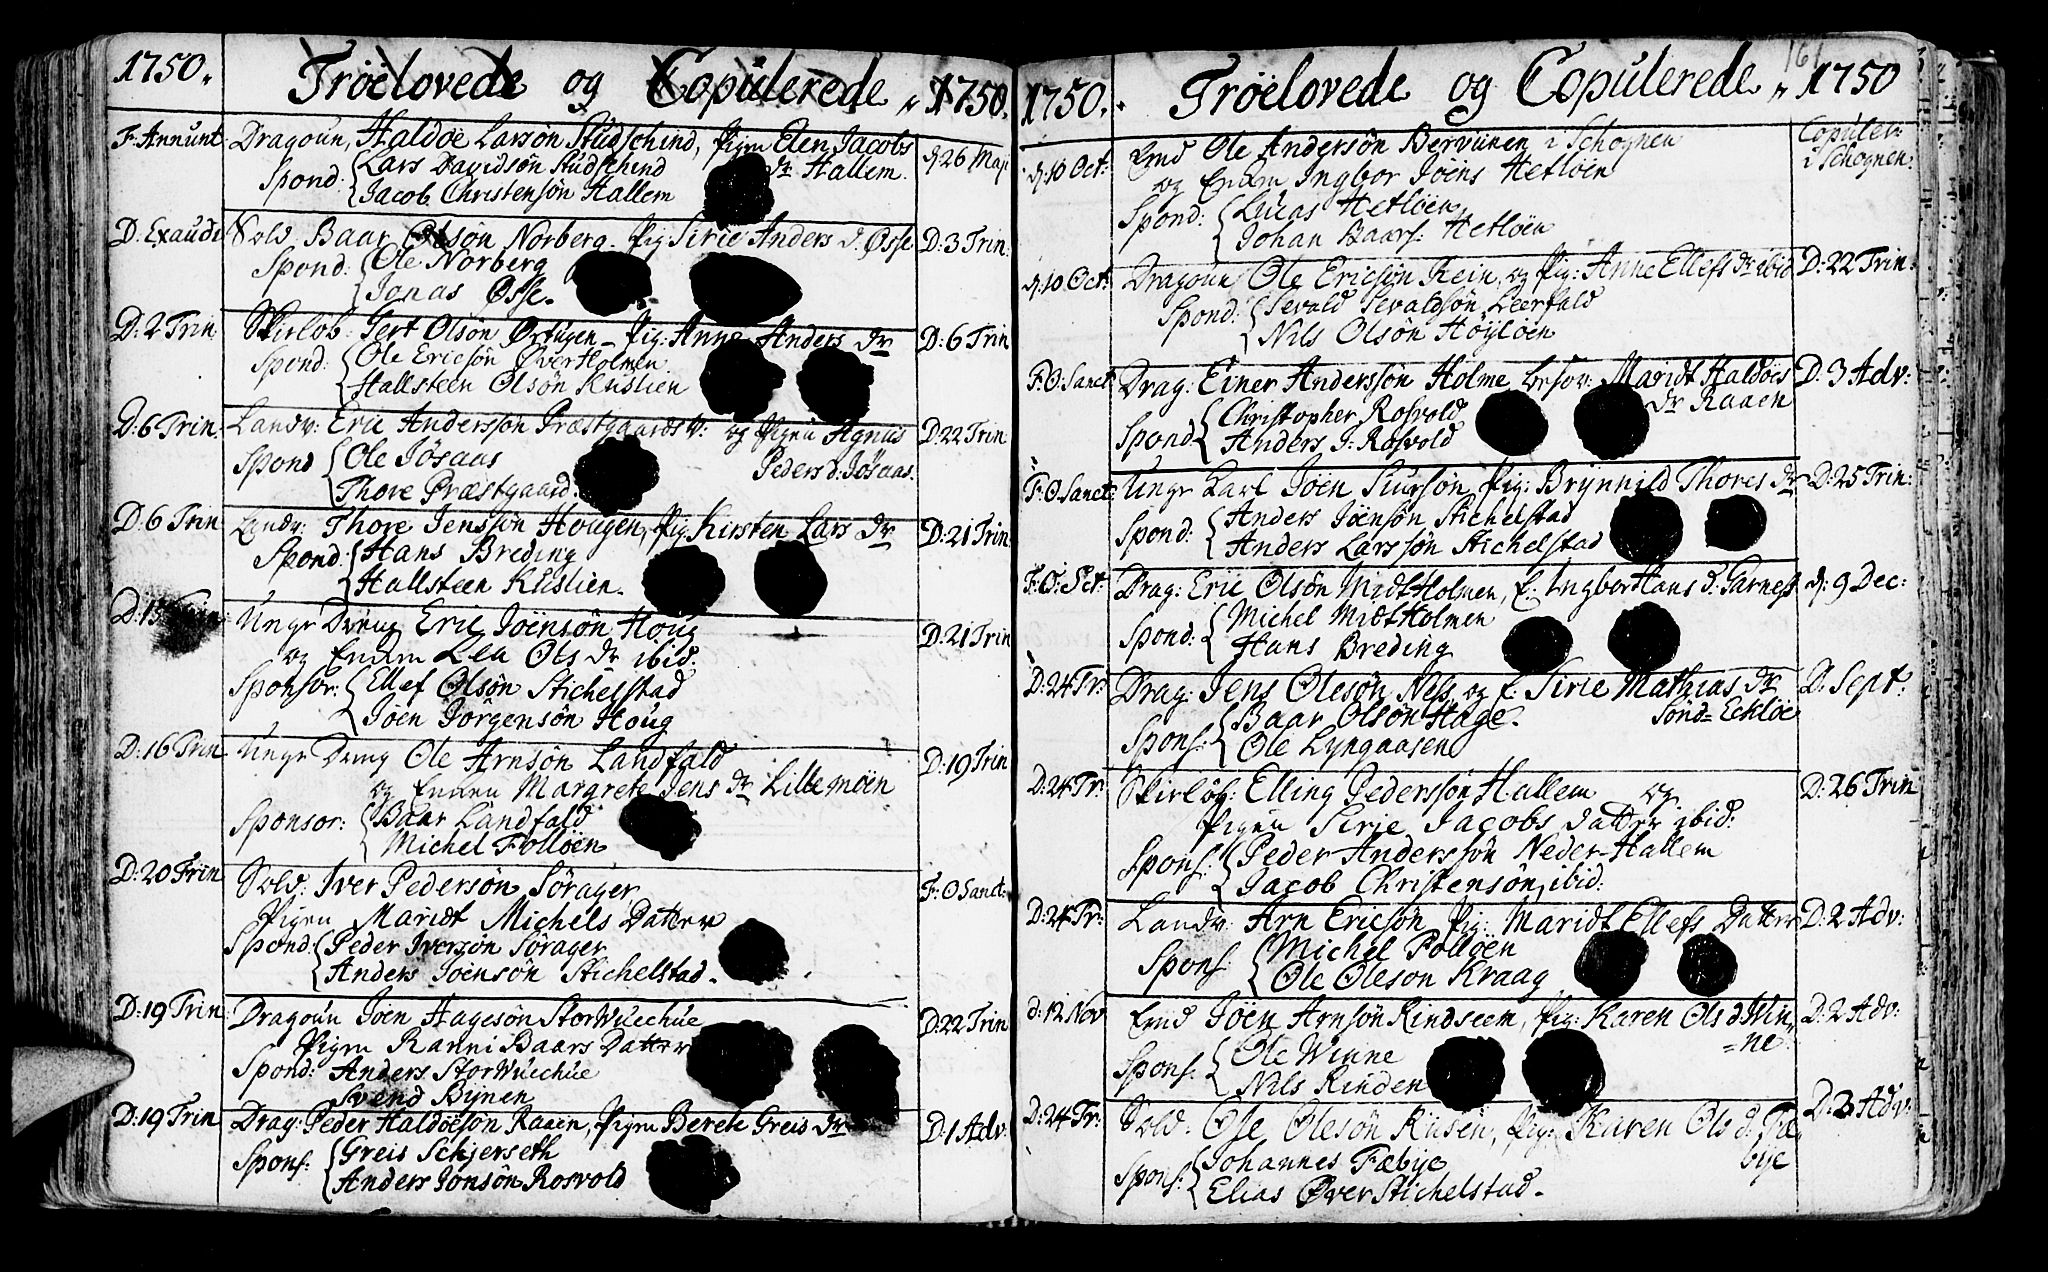 1750. Tröelovede og Copulerede 1750.
F: Annunt: Dragoun, Haldoe Larsön Studschind, Pigen Elen Jacobs d. 26 Maji
Spond: Lars Davidsön Studschind dr Hallem.
Jacob Christensön Hallem
D: Exaudi Sold. Baar Olsön Norberg. Pig: Sirie Anders d. Øsse D: 3 Trin:
Spond: Ole Norberg
Jonas Øsse.
D: 2 Trin Skirlöb: Gert Olson Øxtugen Pig: Anne Anders dr D: 6 Trin
Spond: Ole Ericsön ØverHolmen.
Hallsteen Olsön Kuslien
D: 6 Trin: Landv: Eric Anderssön Præstgaards V: og Pigen Agnus D: 22 Trin
Spond Ole Jösaas Peders d: Jösaas.
Thore Præstgaard.
D: 6 Trin Landv: Thore Jenssön Hougen, Pig: Kirsten Lars dr D: 21 Trin:
Spond: Hans Breding
Hallsteen Kuslien.
D: 13 Trin Ungr Dreng Eric Jöensön Houg D: 21 Trin
og Enken Lea Ols dr ibid:
Sponsor: Ellef Olsön Stichelstad
Jöen Jörgensön Houg
D: 16 Trin Ungr Dreng Ole Arnsön Landfald D: 19 Trin
og Enken Margrete Jens dr Lillemoen
Sponsor: Baar Landfald
Michel Follöen
D: 20 Trin Sold: Iver Pedersön Sörager F: O Sanct:
Pigen Maridt Michels Datter
Spond: Peder Iversön Sörager
Anders Jöensön Stichelstad.
D: 19 Trin Dragoun Jöen Hagesön StorWuechue D: 22 Trin
Pigen Ranni Baars Datter
Spond: Anders StorWuechue
Svend Bynen
D: 19 Trin Drag: Peder Haldöesön Raaen, Pigen Berete Greis dr D: 1 Adv:
Spons: Greis Schjerseth
Anders Jonsön Rosvold
161
1750. Tröelovede og Copulerede 1750
d: 10 Oct: Ole Andersön Bervunen i Schognen Copuler:
og Enken Ingbor Jöens Hetlöen i Schognen.
Spond: Lucas Hetlöen
Johan Baars: Hetlöen
d: 10 Oct: Dragoun Ole Ericsön Rein, og Pig: Anne Ellefs dr ibid D: 22 Trin:
Spond: Sevald Sevaldsön Leerfald
Nils Olsön Höylöen
F: O: Sanct: Drag: Einer Anderssön Holme Maridt Haldoes D: 3 Adv:
Spond: Christopher Rosvold dr Raaen
Anders J: Rosvold
F: O Sanct: Ungr Karl Jöen Siursön, Pig: Brynnild Thores dr D: 25 Trin:
Spond: Anders Jöensön Stichelstad
Anders Larssön Stichelstad
F: O: Sct: Drag: Eric Olsön MidtHolmen, E: Ingbor Hans d: Garness d: 9 Dec:
Spond: Michel MidtHolmen
Hans Breding
D: 24 Tr: Drag: Jens Olesön Ness, og E: Sirie Mathias dr D: Sept:
Spons: Baar Olsön Hage. Sönd=Ecklöe
Ole Lyngaasen
D: 24 Tr: Skirlöb: Elling Pederssön Hallem og D: 26 Trin
Pigen Sirie Jacobs Datter ibid:
Spons: Peder Anderssön Neder-Hallem
Jacob Christensön, ibid:
D: 24 Tr: Landv: Arn Ericsön Pig: Maridt Ellefs Datter D: 2 Adv:
Spons: Michel Pollöen
Ole Oleson Kraag
d: 12 Nov Jöen Arnsön Rindseem, Pig: Karen Ols d Win- D: 2 Adv:
Spons: Ole Winne =ne
Nils Rinden
D: 24 Tr: Sold: Ole Olesön Riisen, Pig: Karen Ols d: Fæ- D: 2 Adv:
Spons: Johannes Fæbye bye
Elias ØverStichelstad.